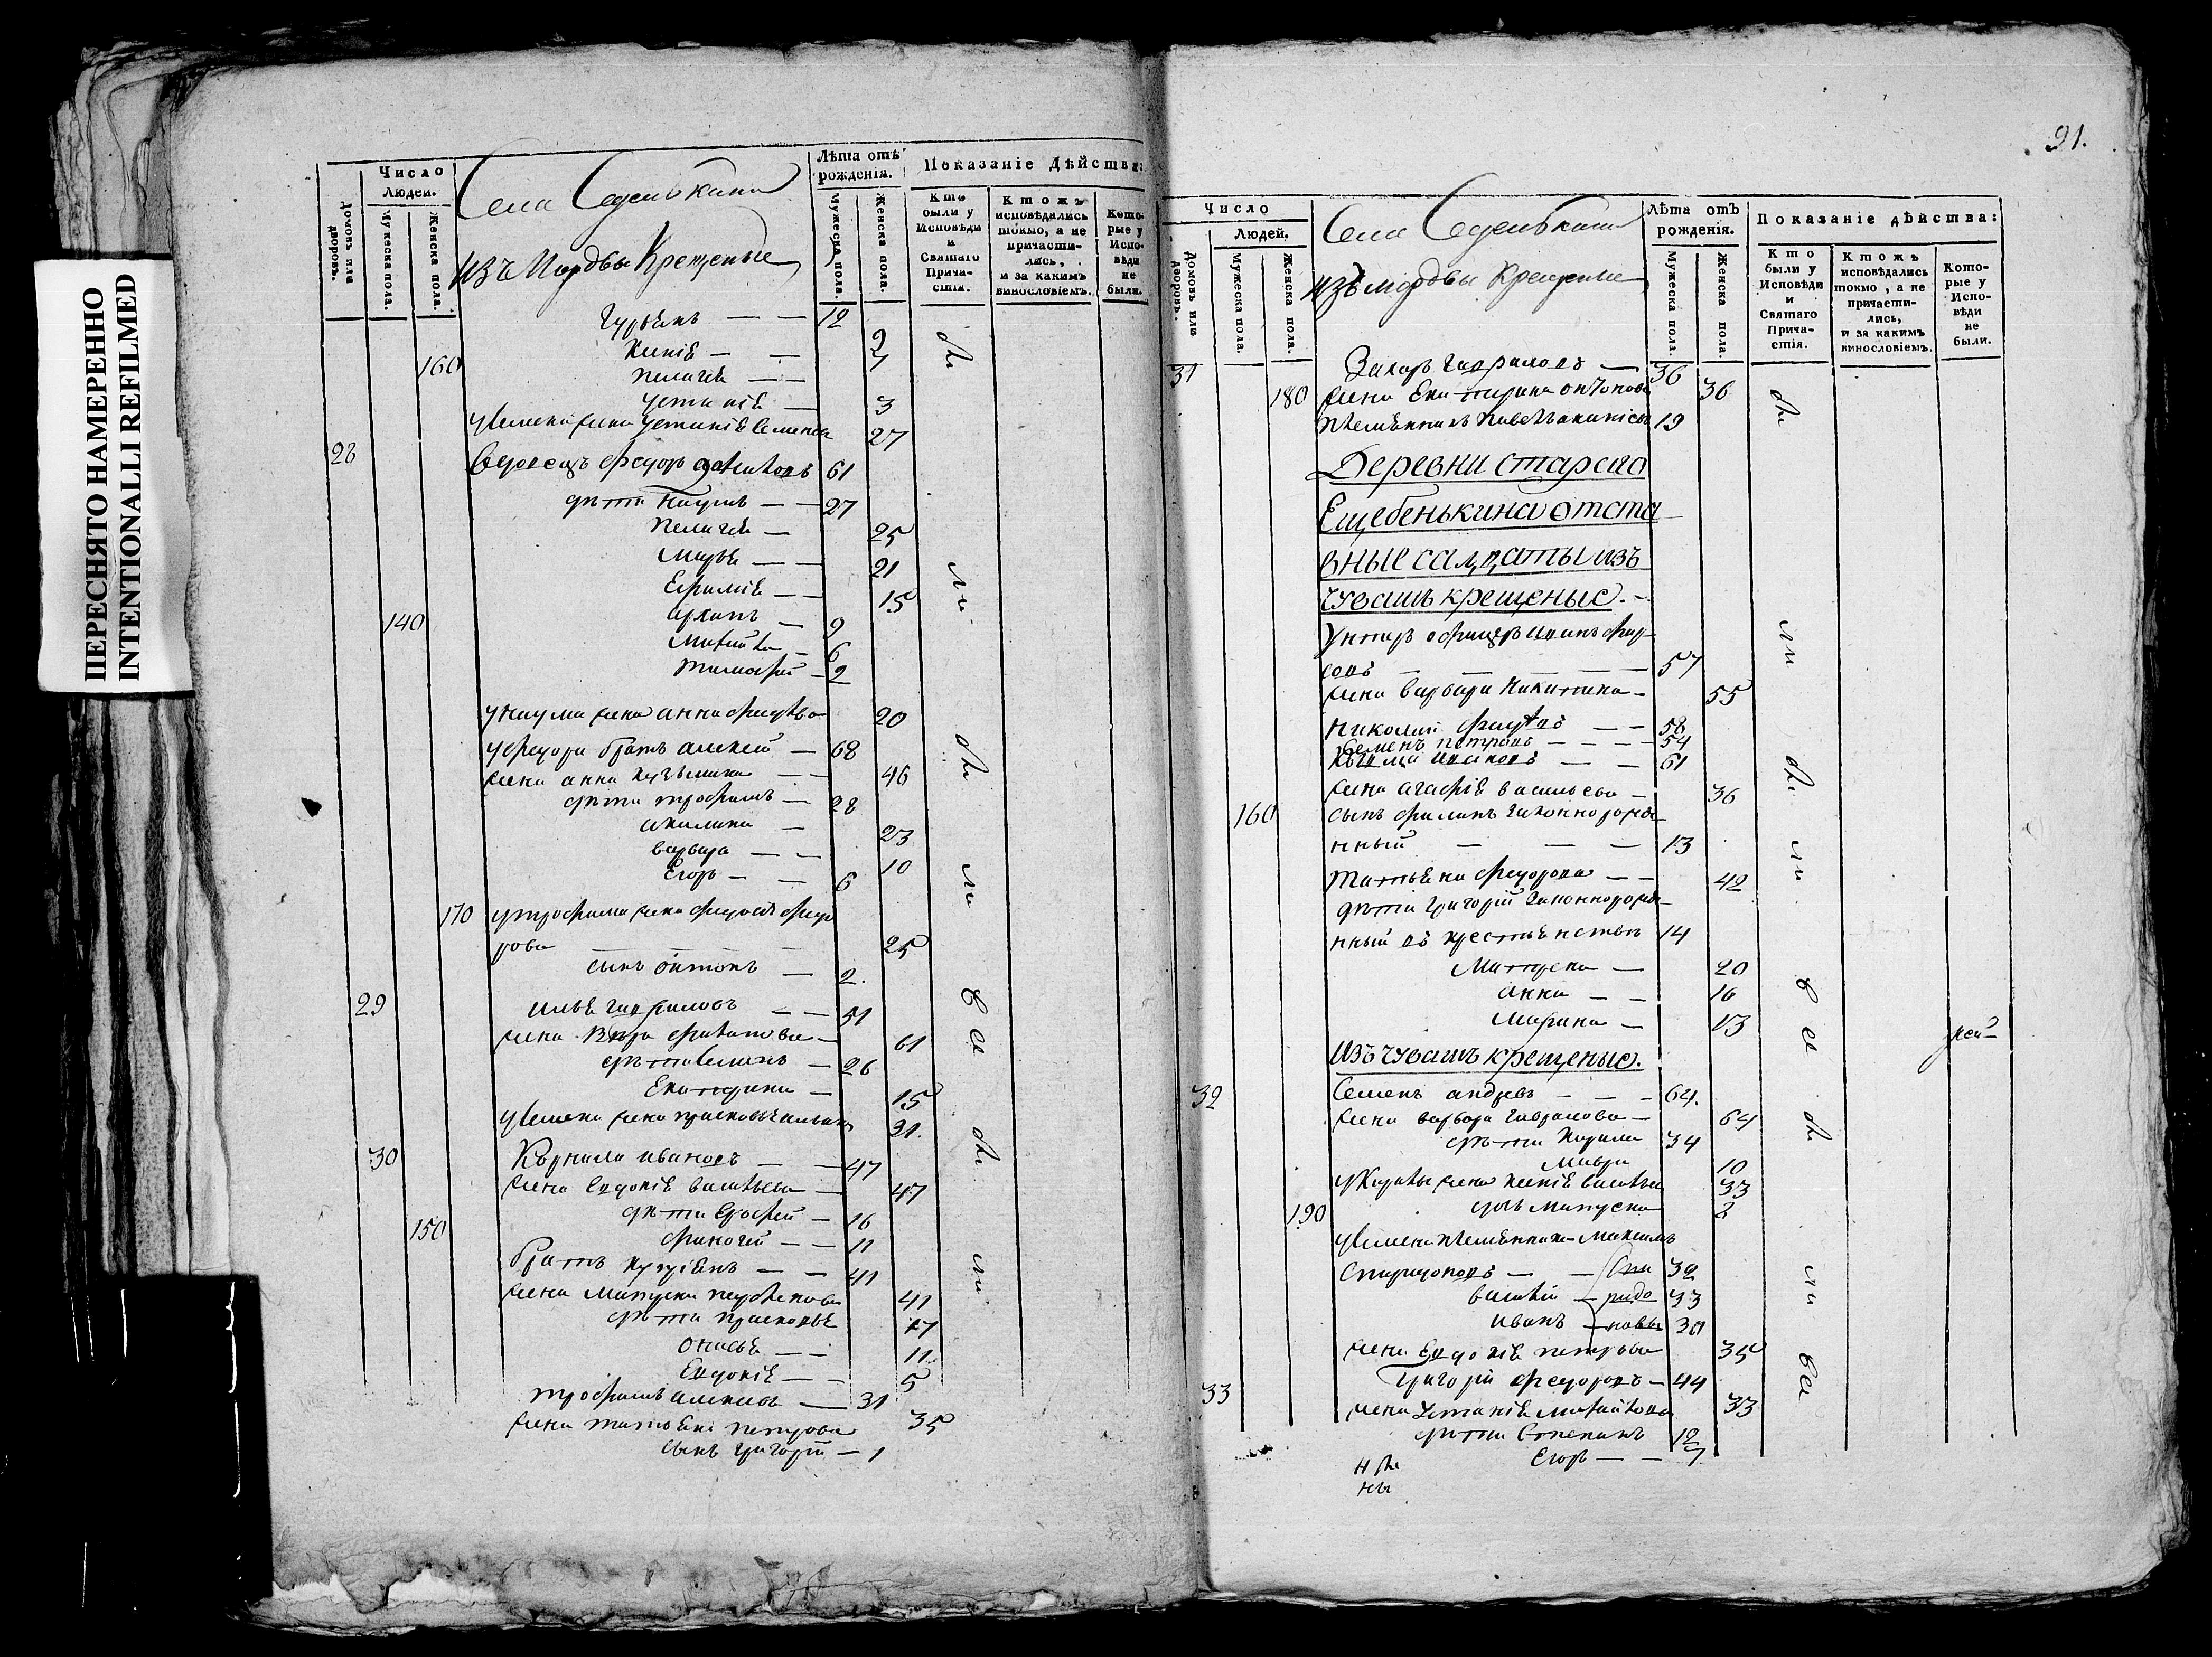 ПЕРЕСНЯТО НАМЕРЕННО
INTENTIONALLI REFILMED
Число
Людей.
Домовъ или дворовъ.
Мужеска пола.
Женска пола.
Села
Изъ Мордвы Крещеные
Лѣта отъ рожденія.
Мужеска пола.
Женска пола.
Показаніе Дѣйства:
Кто были у Исповѣди и Святаго Причастія.
Ктожъ исповѣдались токмо, а не причастились, и за какимъ винословіемъ.
Которые у Исповѣди не были.
Гурьянъ — — 12
Ксенія — — 9
160 Пелагея — — 7
Устинія — 3
у Семена жена Устинія Семенова 27
28 Вдовецъ Федоръ 61
дѣти Наумъ — — 27
Пелагея — 25
Марья — — 21
Ефимія — — 15
140 Архипъ — 9
6
Тимофей — 2
у Наума жена Анна 20
у Федора братъ Алексей — 68
жена Анна — — 46
дѣти Трофимъ — 28
Акилина — 23
Варвара — — 10
Егоръ — — 6
170 у Трофима жена Федо
рова — — — 25
сынъ Антонъ — 2.
29 Илья Гавриловъ — — 51
жена Вѣра — 61
дѣти Семенъ — 26
Екатерина — 15
у Семена жена 31.
30 Корнила Ивановъ — — 47
жена Евдокія Васильева — 47
дѣти Ерофей — 16
150 — — 11
Братъ — — 41
жена Матрена 41
дѣти Прасковья 17
Онисья — — 11
Евдокія — — 5
Трофимъ Алексеевъ — 31
жена Татьяна Петрова 35
сынъ Григорій — 1
91.
Число
Людей.
Домовъ или дворовъ.
Мужеска пола.
Женска пола.
Села
изъ мордвы Крещеные
Лѣта отъ рожденія.
Мужеска пола.
Женска пола.
Показаніе дѣйства:
Кто были у Исповѣди и Святаго Причастія.
Ктожъ исповѣдались токмо, а не причастились, и за какимъ винословіемъ.
Которые у Исповѣди не были.
31 Захаръ Гавриловъ — 36
180 жена Екатерина 36
племянникъ 19
Деревни старого
Ещебенькина отста
вные салдаты изъ
чувашъ крещеные. —
Унтеръ офицеръ Иванъ Фед
ровъ — — — 57
жена Варвара Никитина — 55
Николай — — 58
Семенъ Петровъ — — — 54
Кузьма Ивановъ — — 61
жена Агафія Васильева — 36
160 сынъ Филипъ законнорожде
нный — — — 13
Татьяна Федорова — — 42
дѣти Григорій законнорожде
нный въ крестьянствѣ 14
Матрена — 20
Анна — — 16
Марина — 13
Изъ чувашъ крещеные.
32 Семенъ Андреевъ — — — 64.
жена Варвара Гаврилова — 64
дѣти Кирила 34
Мавра 10
жена Ксенія Васильева 33
190 дочь Матрена 2
у Семена племянники Максимъ
Спиридоновъ — — 32
Василій — 33
Иванъ 30
Спи
ридо
новы
жена Евдокія Петрова 35
33 Григорій Федоровъ — 44
жена Устинія 33
дѣти Степанъ 12
Егоръ — — 7